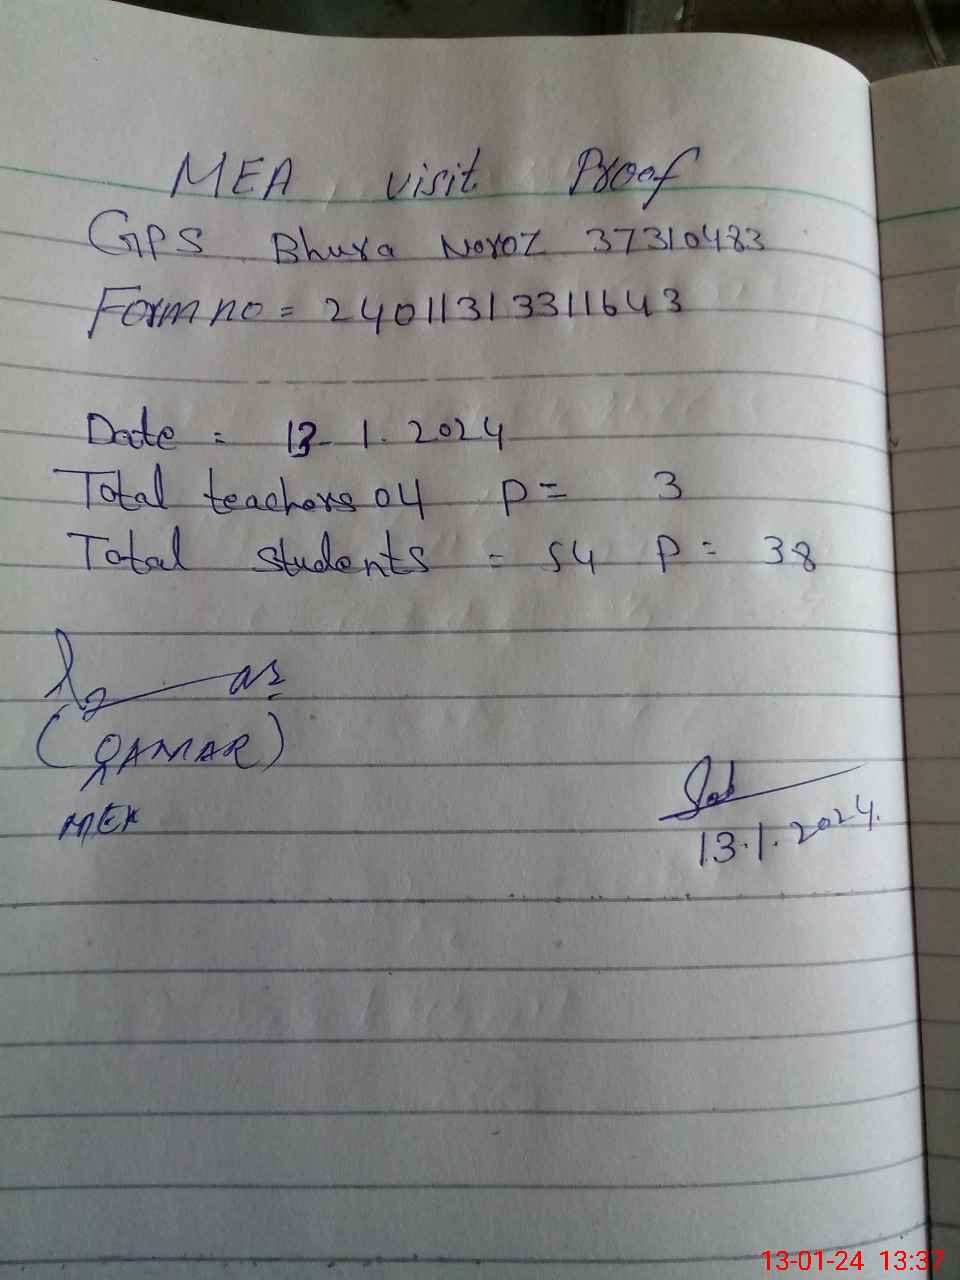 MEA visit Proof
GPS Bhura Noroz 37310483
Form no = 24011313311643
Date = 13-1.2024
Total teachers 04 P = 3
Total students = 54 P = 38
(QAMAR)
MEA
13.1.2024.
13-01-24 13:37